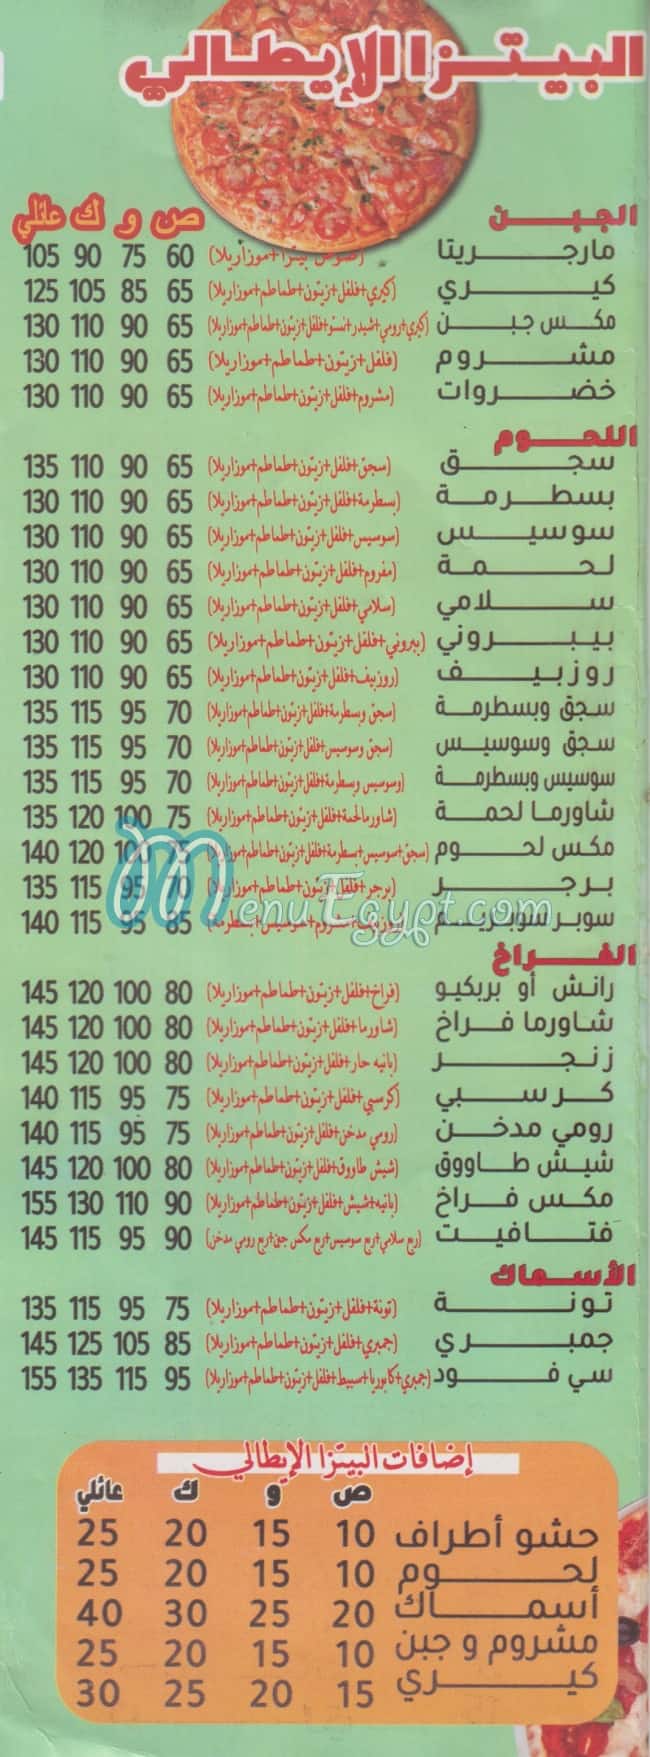 البيتزا الإيطالي
الجبن ص و ك عائلي
مارجريتا (صوص بيتزا+موزاريلا) 60 75 90 105
كيري (كيري+فلفل+زيتون+طماطم+موزاريلا) 65 85 105 125
مكس جبن (كيري+رومي+شيدر+نستو+فلفل+زيتون+طماطم+موزاريلا) 65 90 110 130
مشروم (فلفل+زيتون+طماطم+موزاريلا) 65 90 110 130
خضروات (مشروم+فلفل+زيتون+طماطم+موزاريلا) 65 90 110 130
اللحوم
سجق (سجق+فلفل+زيتون+طماطم+موزاريلا) 65 90 110 135
بسطرمة (بسطرمة+فلفل+زيتون+طماطم+موزاريلا) 65 90 110 130
سوسيس (سوسيس+فلفل+زيتون+طماطم+موزاريلا) 65 90 110 130
لحمة (مفروم+فلفل+زيتون+طماطم+موزاريلا) 65 90 110 130
سلامي (سلامي+فلفل+زيتون+طماطم+موزاريلا) 65 90 110 130
بيبروني (بيروني+فلفل+زيتون+طماطم+موزاريلا) 65 90 110 130
روزبيف (روزبيف+فلفل+زيتون+طماطم+موزاريلا) 65 90 110 130
سجق وبسطرمة (سجق وبسطرمة+فلفل+زيتون+طماطم+موزاريلا) 70 95 115 135
سجق وسوسيس (سجق وسوسيس+فلفل+زيتون+طماطم+موزاريلا) 70 95 115 135
سوسيس وبسطرمة (وسوسيس وبسطرمة+فلفل+زيتون+طماطم+موزاريلا) 70 95 115 135
شاورما لحمة (شاورمالحمة+فلفل+زيتون+طماطم+موزاريلا) 75 100 120 135
مكس لحوم (سجق+سوسيس+بسطرمة+فلفل+زيتون+طماطم+موزاريلا) 75 100 120 140
برجر (برجر+فلفل+زيتون+طماطم+موزاريلا) 70 95 115 135
سوبر سوبريم مشروم+سوسيس+بسطرمة) 85 95 115 140
MenuEgypt.com
الفراخ
رانش أو بربكيو (فراخ+فلفل+زيتون+طماطم+موزاريلا) 80 100 120 145
شاورما فراخ (شاورما+فلفل+زيتون+طماطم+موزاريلا) 80 100 120 145
زنجر (بانيه حار+فلفل+زيتون+طماطم+موزاريلا) 80 100 120 145
كرسبي (كرسبي+فلفل+زيتون+طماطم+موزاريلا) 75 95 115 140
رومي مدخن (رومي مدخن+فلفل+زيتون+طماطم+موزاريلا) 75 95 115 140
شيش طاووق (شيش طاووق+فلفل+زيتون+طماطم+موزاريلا) 80 100 120 145
مكس فراخ (بانيه+شيش+فلفل+زيتون+طماطم+موزاريلا) 90 110 130 155
فتافيت (ربع سلامي+ربع سوسيس+ربع مكس جبن+ربع رومي مدخن) 90 95 115 145
الأسماك
تونة (تونة+فلفل+زيتون+طماطم+موزاريلا) 75 95 115 135
جمبري (جمبري+فلفل+زيتون+طماطم+موزاريلا) 85 105 125 145
سي فود (جمبري+كابوريا+سبيط+فلفل+زيتون+طماطم+موزاريلا) 95 115 135 155
إضافات البيتزا الإيطالي
ص و ك عائلي
حشو أطراف 10 15 20 25
لحوم 10 15 20 25
أسماك 20 25 30 40
مشروم و جبن 10 15 20 25
كيري 15 20 25 30